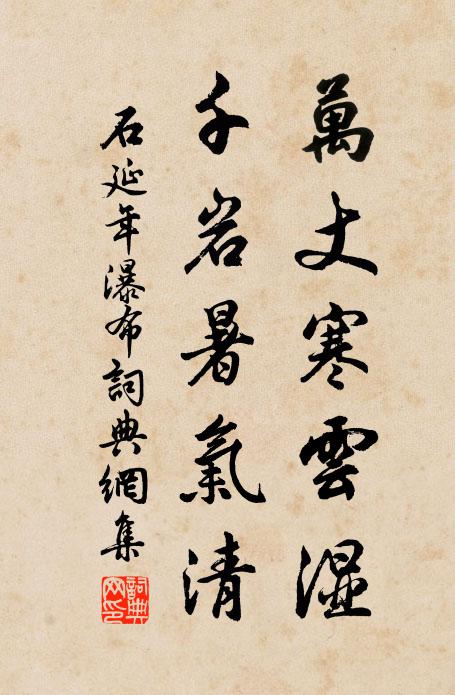 萬丈寒雲湿
千岩暑氣清
石延年瀑布詞典網集
詞典
网印